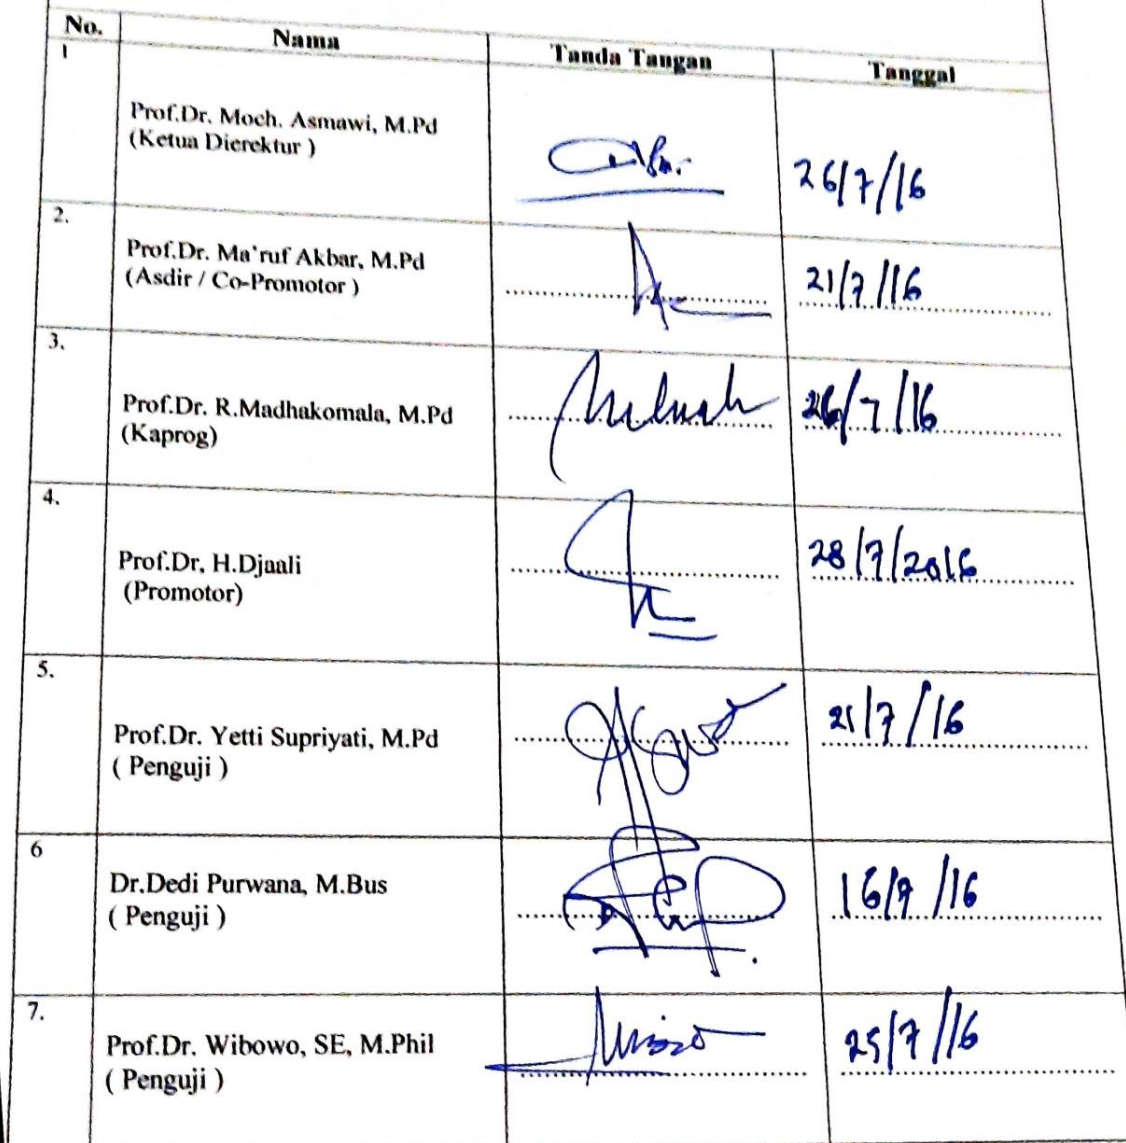 No. Nama Tanda Tangan Tanggal
1
Prof.Dr. Moch. Asmawi, M.Pd
(Ketua Dierektur )
26/7/16
2.
Prof.Dr. Ma'ruf Akbar, M.Pd
(Asdir / Co-Promotor )
21/7/16
3.
Prof.Dr. R.Madhakomala, M.Pd
(Kaprog)
26/7/16
4.
Prof.Dr, H.Djaali
(Promotor)
28/7/2016
5.
Prof.Dr. Yetti Supriyati, M.Pd
( Penguji )
21/7/16
6
Dr.Dedi Purwana, M.Bus
( Penguji )
7.
Prof.Dr. Wibowo, SE, M.Phil
( Penguji )
25/7/16